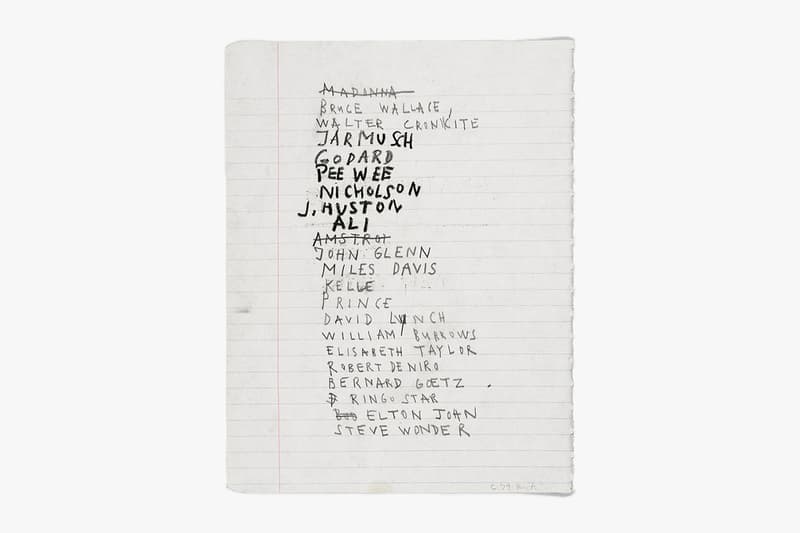 MADONNA
BRUCE WALLACE,
WALTER CRONKITE
JARMUSH
GODARD
PEE WEE
NICHOLSON
J. HUSTON
ALI
AMSTROT
JOHN GLENN
MILES DAVIS
KELLE
PRINCE
DAVID LYNCH
WILLIAM BURROWS
ELISABETH TAYLOR
ROBERT DENIRO
BERNARD GOETZ .
RINGO STAR
ELTON JOHN
STEVE WONDER